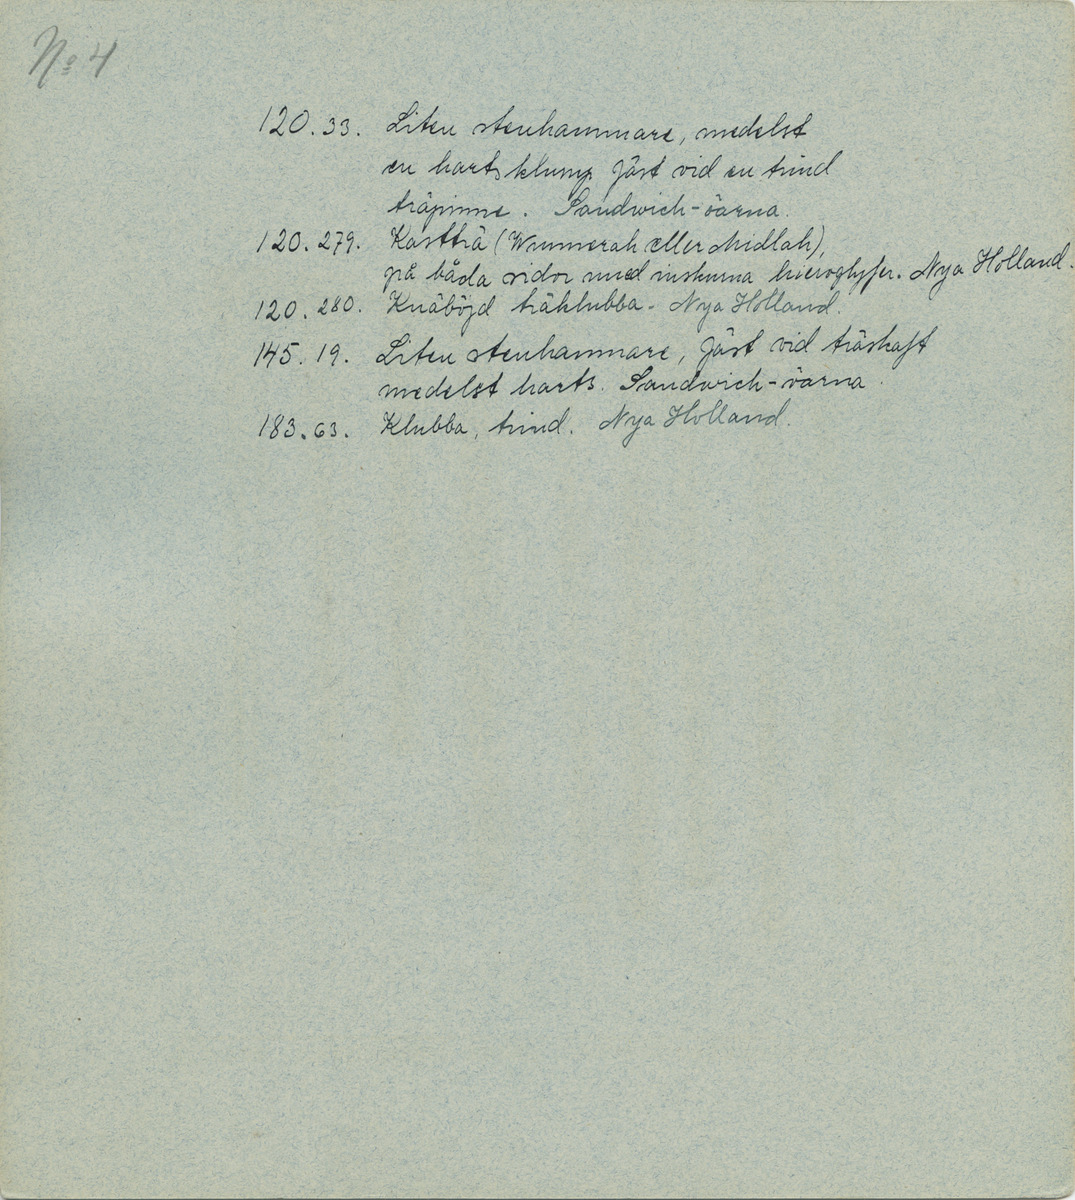 No 4
120.33. Liten stenhammare, medelst
en hartsklump fäst vid en trind
träpinne. Sandwich-öarna.
120.279. Kastträ (Wummerah eller Midlah),
på båda sidor med inskurna hieroglyfer. Nya Holland.
120.280. Knäböjd träklubba - Nya Holland.
145.19. Liten stenhammare, fäst vid träskaft
medelst harts. Sandwich-öarna.
183.63. Klubba, trind. Nya Holland.